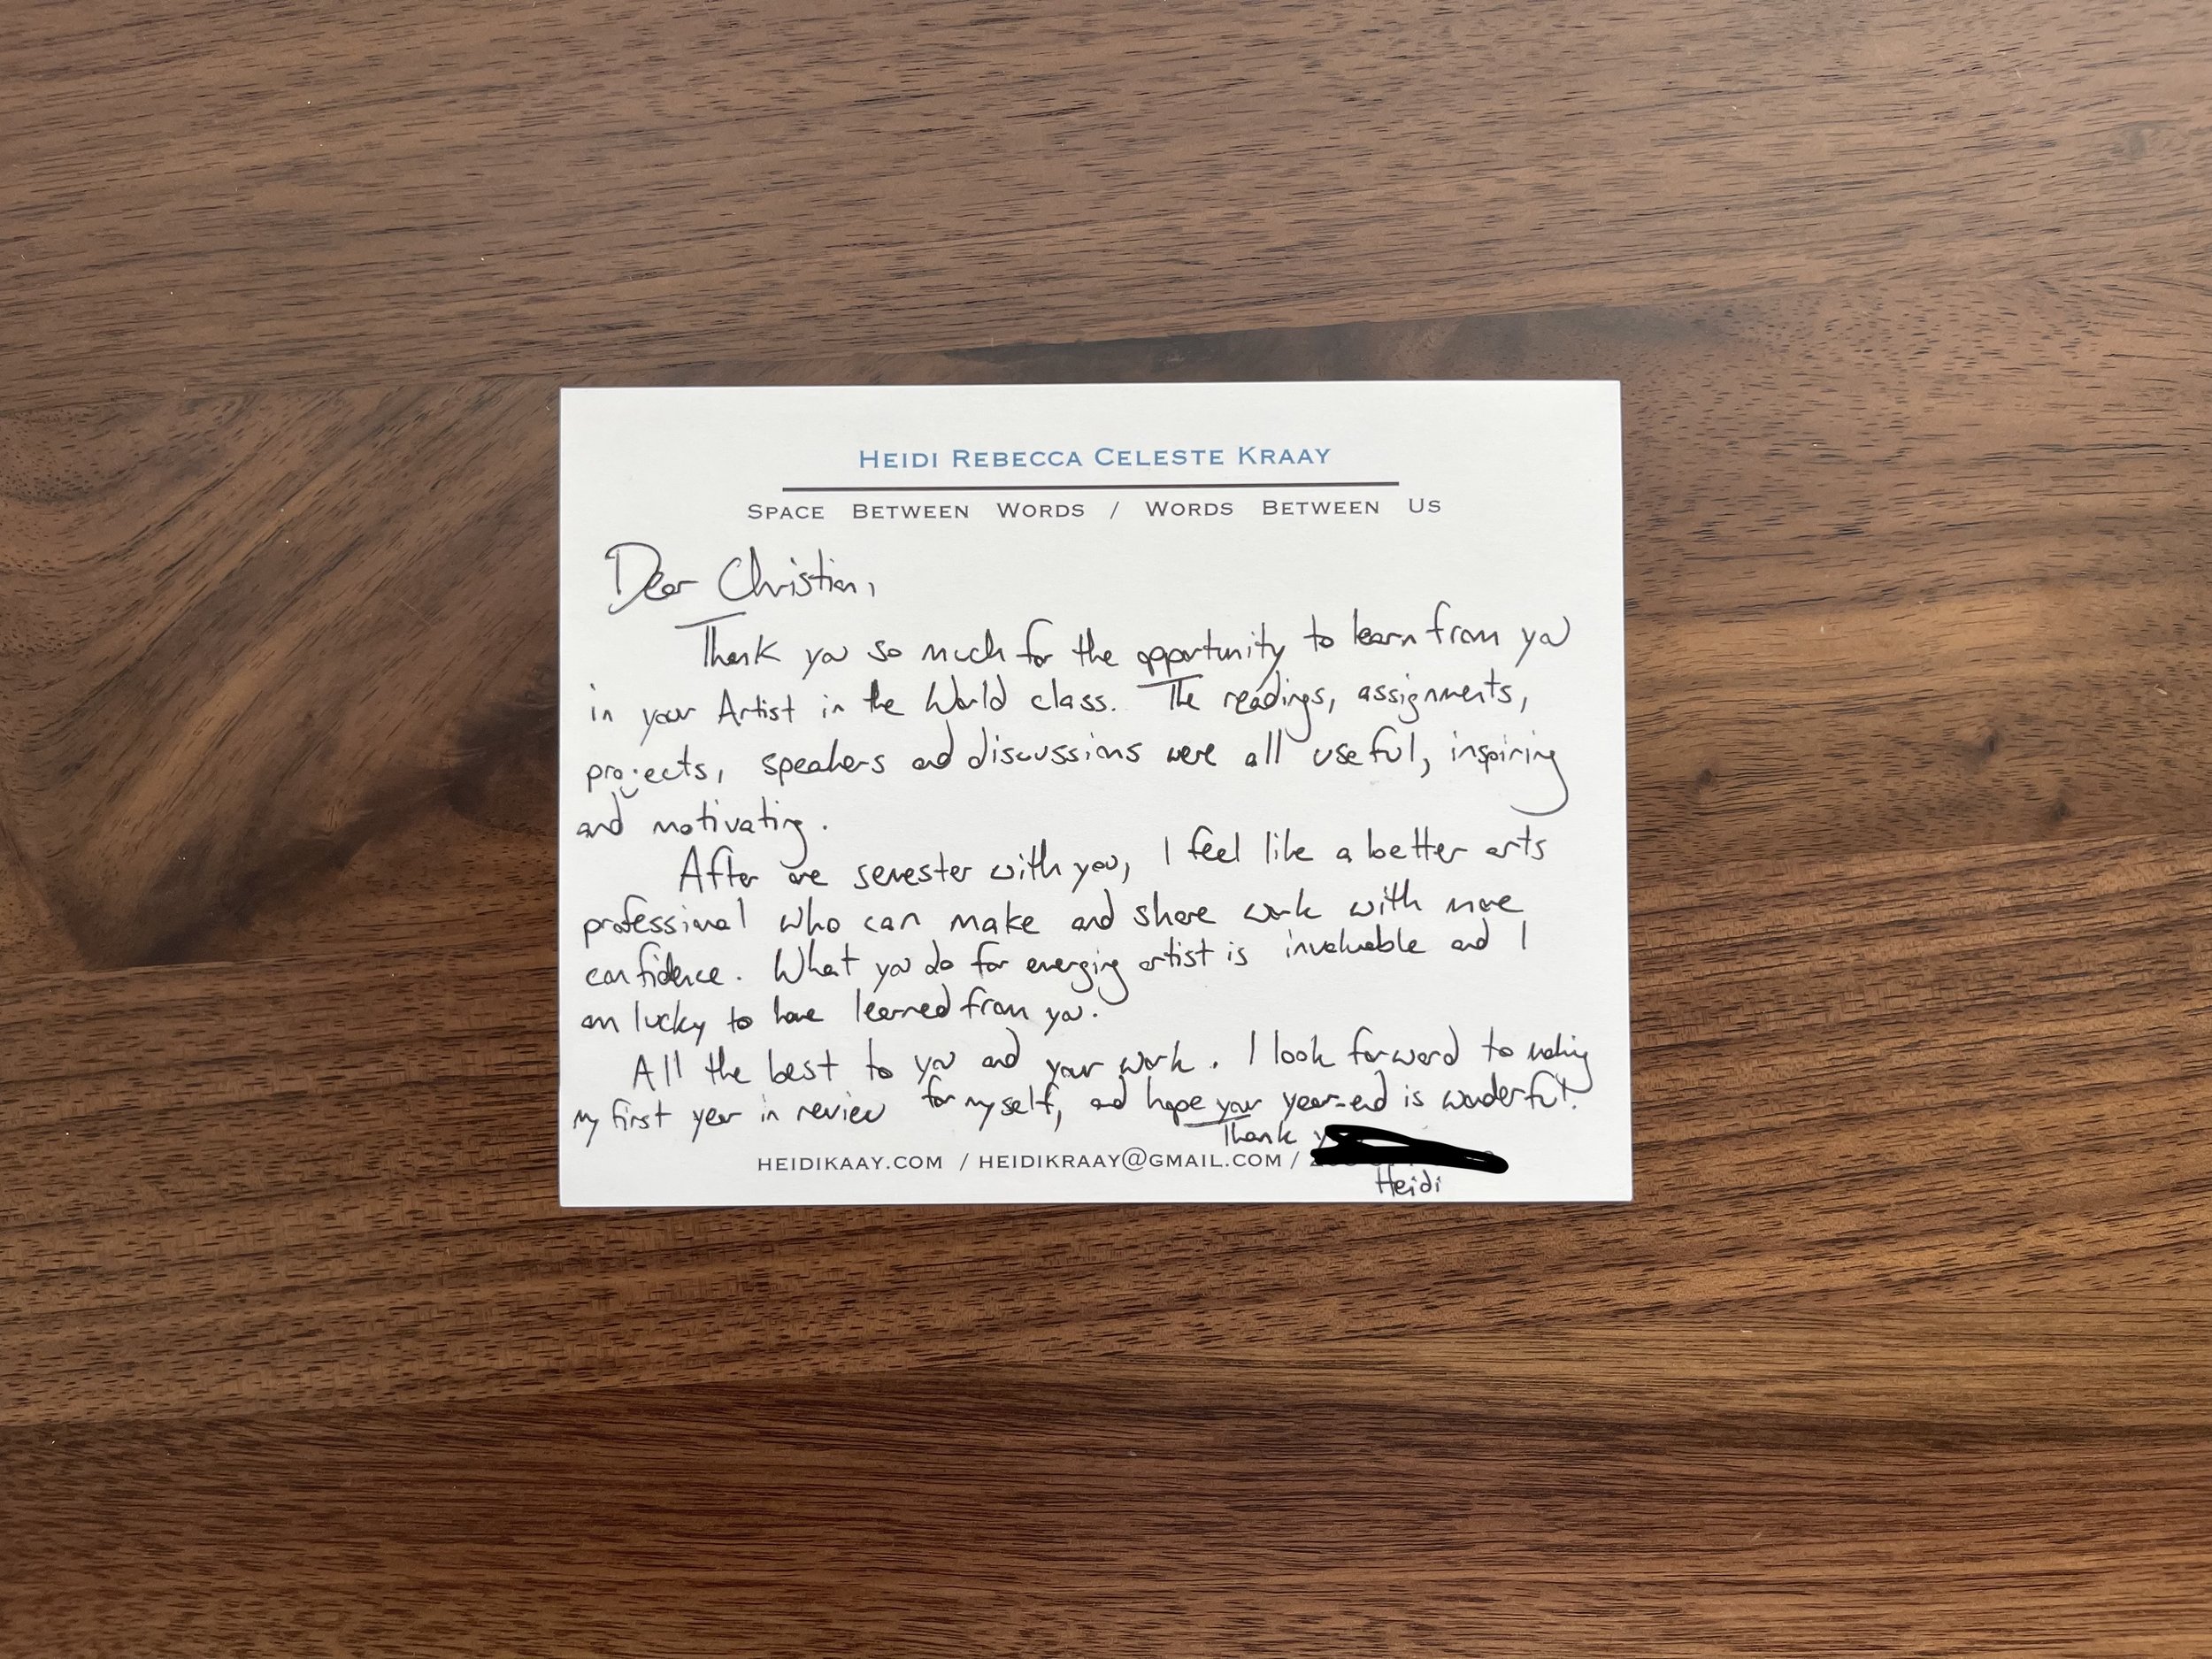 HEIDI REBECCA CELESTE KRAAY
SPACE BETWEEN WORDS / WORDS BETWEEN US
Dear Christian,
Thank you so much for the opportunity to learn from you
in your Artist in the World class. The readings, assignments,
projects, speakers and discussions were all useful, inspiring
and motivating.
After one semester with you, I feel like a better arts
professional who can make and share work with more
confidence. What you do for emerging artist is invaluable and I
am lucky to have learned from you.
All the best to you and your work. I look forward to making
my first year in review for myself, and hope your year-end is wonderful.
Thank
HEIDIKAAY.COM / HEIDIKRAAY@GMAIL.COM /
Heidi